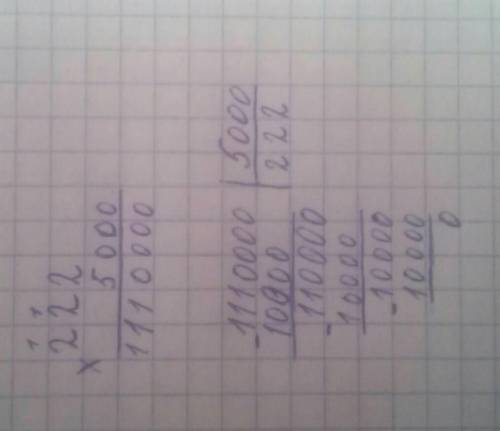 1 1
222
× 5000
1110000
-1110000 | 5000
10000 | 222
-110000
10000
-10000
10000
0